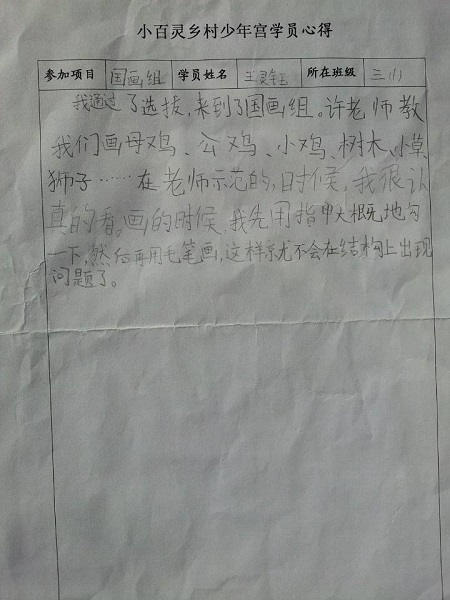 小百灵乡村少年宫学员心得
参加项目 国画组 学员姓名 所在班级 三(1)
我通过了选拔,来到了国画组。许老师教
我们画母鸡、公鸡、小鸡、树木、小草
狮子……在老师示范的,时候,我很认
真的看。画的时候,我先用指甲大概地勾
一下,然后再用毛笔画,这样就不会在结构上出现
问题了。